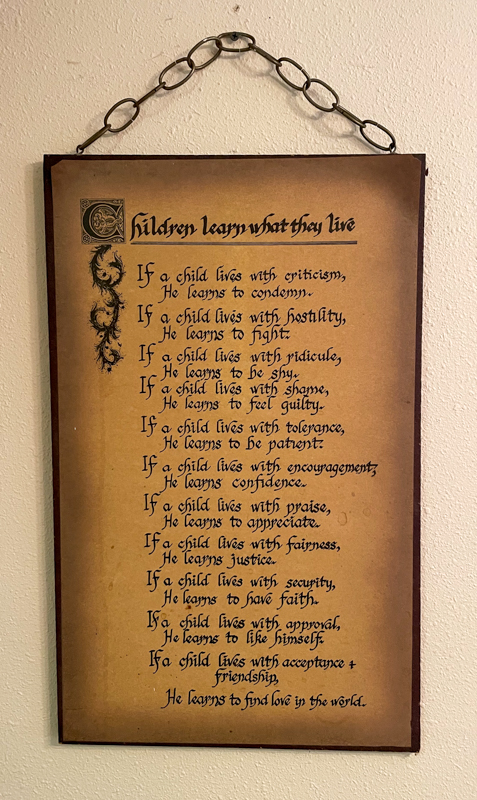 Children learn what they live
If a child lives with criticism,
He learns to condemn.
If a child lives with hostility,
He learns to fight.
If a child lives with ridicule,
He learns to be shy.
If a child lives with shame,
He learns to feel guilty.
If a child lives with tolerance,
He learns to be patient.
If a child lives with encouragement,
He learns confidence.
If a child lives with praise,
He learns to appreciate.
If a child lives with fairness,
He learns justice.
If a child lives with security,
He learns to have faith.
If a child lives with approval,
He learns to like himself.
If a child lives with acceptance +
friendship,
He learns to find love in the world.